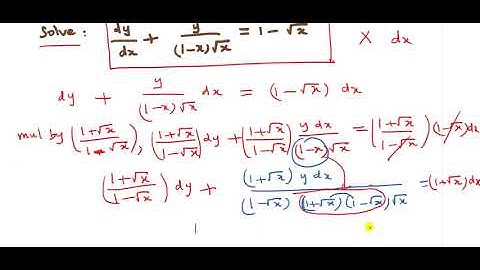 Solve : dy/dx + y/((1-x)√x) = 1 - √x × dx
dy + y/((1-x)√x) dx = (1-√x) dx
mul by ((1+√x)/(1-√x)), ((1+√x)/(1-√x)) dy + ((1+√x)/(1-√x)) y dx/((1-x)√x) = ((1+√x)/(1-√x)) (1-√x) dx
((1+√x)/(1-√x)) dy + (1+√x) y dx/((1-√x) (1+√x) (1-√x) √x) = (1+√x) dx